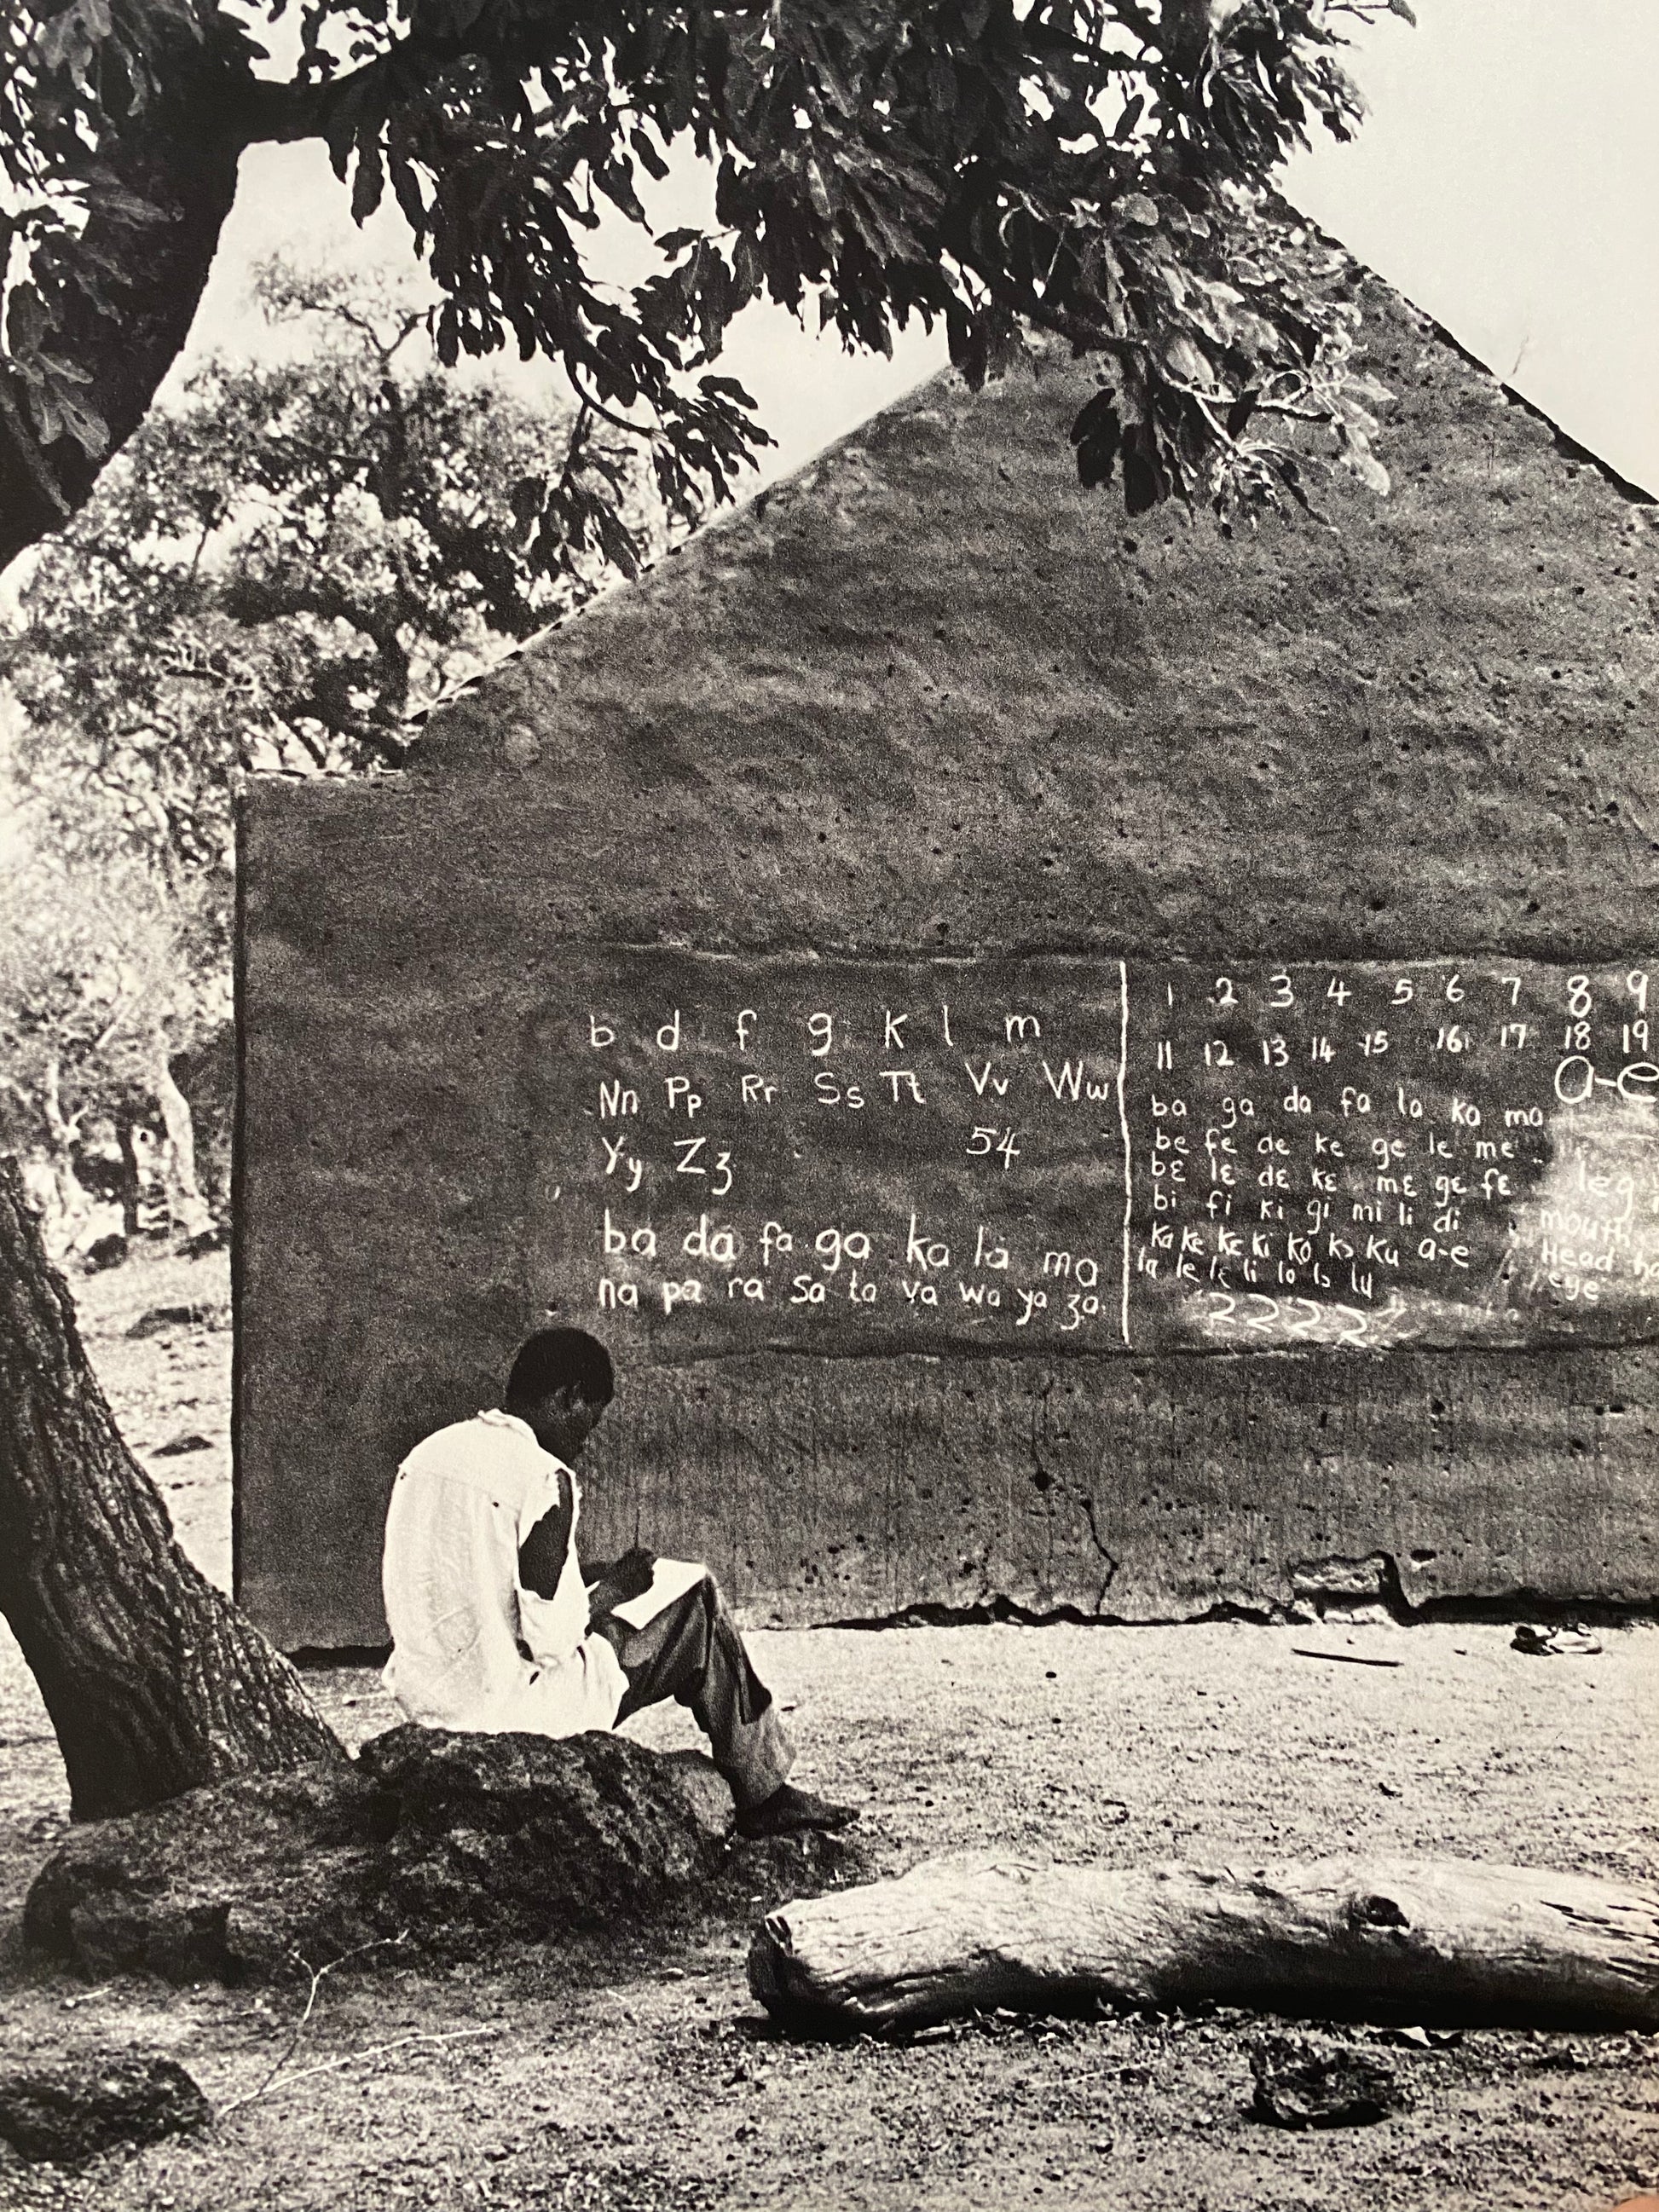 b d f g k l m
Nn Pp Rr Ss Tt Vv Ww
Yy Zz 54
ba da fa ga ka la ma
na pa ra sa ta va wa ya za
1 2 3 4 5 6 7 8 9
11 12 13 14 15 16 17 18 19
a-e
ba ga da fa la ka ma
be fe de ke ge le me
bɛ lɛ dɛ kɛ mɛ gɛ fɛ
bi fi ki gi mi li di
ka ke kɛ ki ko kɔ ku a-e
la le lɛ li lo lɔ lu
2222
leg
mouth
Head
eye